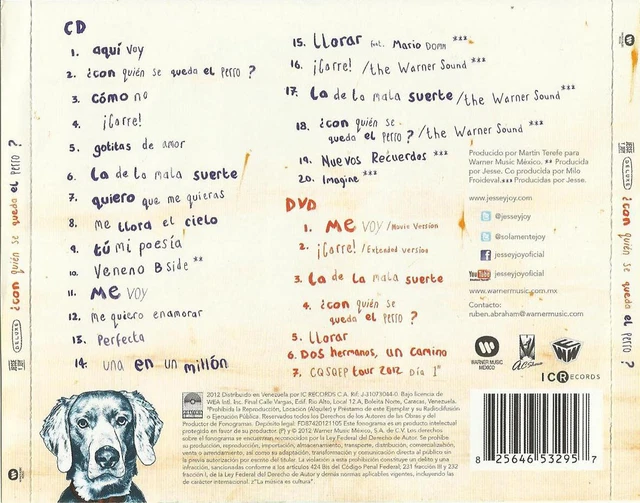 CD
1. aquí voy
2. ¿con quién se queda el perro?
3. cómo no
4. ¡Corre!
5. gotitas de amor
6. La de la mala suerte
7. quiero que me quieras
8. me llora el cielo
9. tú mi poesía
10. Veneno B side **
11. Me voy
12. me quiero enamorar
13. Perfecta
14. una en un millón
15. Llorar feat. Mario Domm ***
16. ¡Corre! /the Warner Sound ***
17. La de la mala suerte /the Warner Sound ***
18. ¿con quién se
queda el perro? /the Warner Sound ***
19. Nuevos Recuerdos ***
20. Imagine ***
DVD
1. Me voy /Movie Version
2. ¡Corre! /Extended version
3. La de la mala suerte
4. ¿con quién se
queda el perro?
5. Llorar
6. Dos hermanos, un camino
7. CQSQEP tour 2012 Día 1°
Producido por Martin Terefe para
Warner Music México. ** Producida
por Jesse. Co producida por Milo
Froideval.*** Producidas por Jesse.
www.jesseyjoy.com
@jesseyjoy
@solamentejoy
jesseyjoyoficial
YouTube jesseyjoyoficial
www.warnermusic.com.mx
Contacto:
ruben.abraham@warnermusic.com
WARNER MUSIC
MÉXICO
IC RECORDS
2012 Distribuido en Venezuela por IC RECORDS C.A. Rif: J-31073044-0. Bajo licencia de
WEA Intl. Inc. Final Calle Vargas, Edif. Rio Alto, Local 12 A, Boleita Norte, Caracas, Venezuela.
"Prohibida la Reproducción, Locación (Alquiler) y Préstamo de este Ejemplar y su Radiodifusión
o Ejecución Pública. Reservados todos los Derechos de los Autores de las Obras y del
Productor de Fonogramas. Depósito legal: FD87420121105 Este fonograma es un producto intelectual
protegido en favor de su productor. (P) y © 2012 Warner Music México, S.A. de C.V. Los derechos
sobre el fonograma se encuentran reconocidos por la Ley Federal del Derecho de Autor. Se prohíbe
su reproducción, importación, almacenamiento, transporte, distribución, comercialización,
venta o arrendamiento, así como su adaptación, transformación y comunicación directa al público sin
la previa autorización por escrito del titular. La violación a esta prohibición constituye un delito y una
infracción, sancionadas conforme a los artículos 424 Bis del Código Penal Federal; 231 fracción III y 232
fracción I, de la Ley Federal del Derecho de Autor y demás normas aplicables vigentes, incluyendo las
de carácter internacional. "La música es cultura".
8 25646 53295 7
¿con quién se queda el perro?
DELUXE
¿con quién se queda el perro?
DELUXE